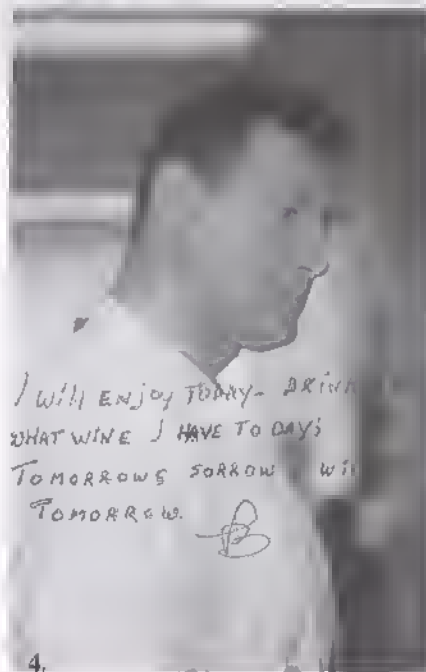 I WILL ENJOY TODAY - DRINK
WHAT WINE I HAVE TODAY;
TOMORROWS SORROW
TOMORROW.
B
4.